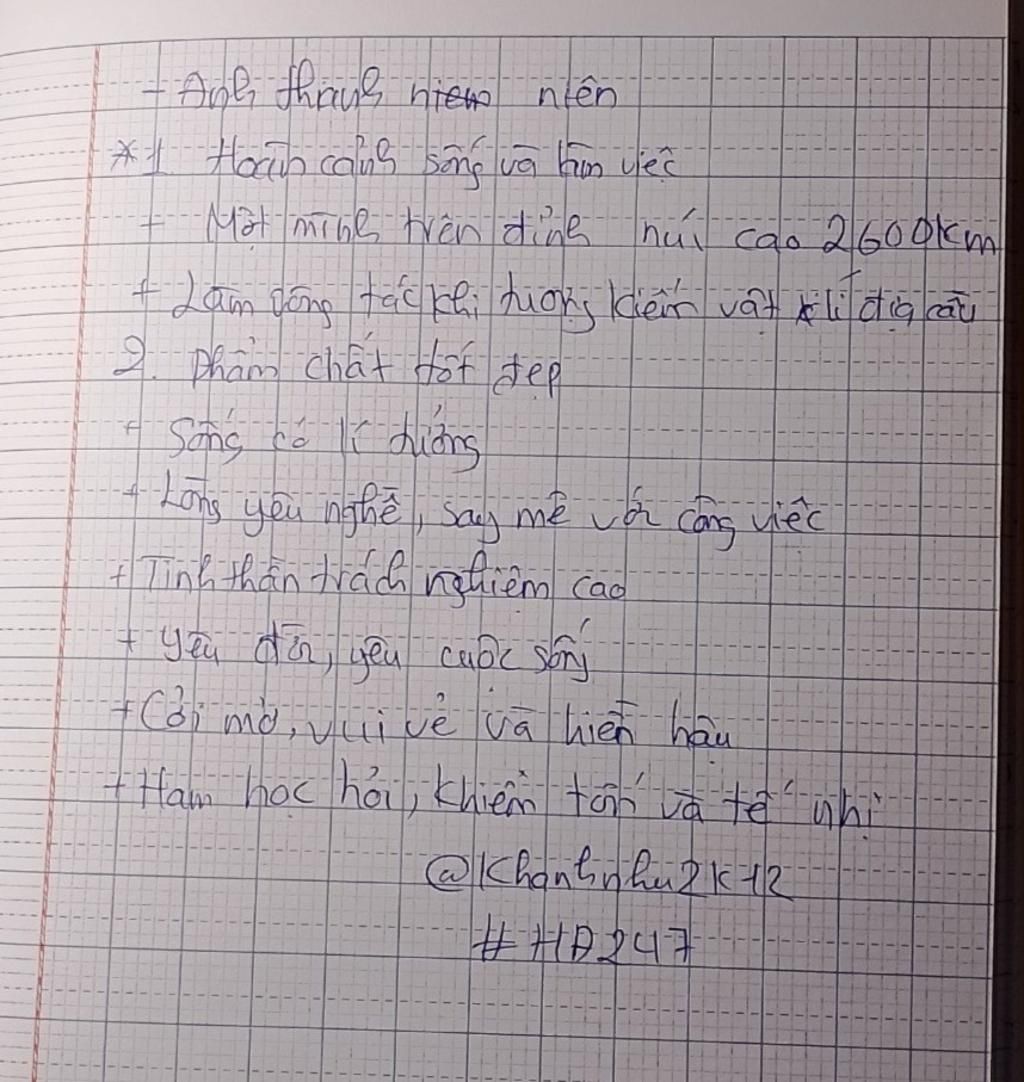 - Anh thanh niên niên
* 1 Hoàn cảnh sống và làm việc
+ Một mình trên đỉnh núi cao 2600km
+ Làm công tác khí tượng kiêm vật lí địa cầu
2. Phẩm chất tốt đẹp
+ Sống có lí tưởng
+ Lòng yêu nghề, say mê với công việc
+ Tinh thần trách nghiêm cao
+ yêu đời, yêu cuộc sống
+ Cởi mở, vui vẻ và hiền hậu
+ Ham học hỏi, khiêm tốn và tế nhị
@Khanhnhu2k12
#HD247